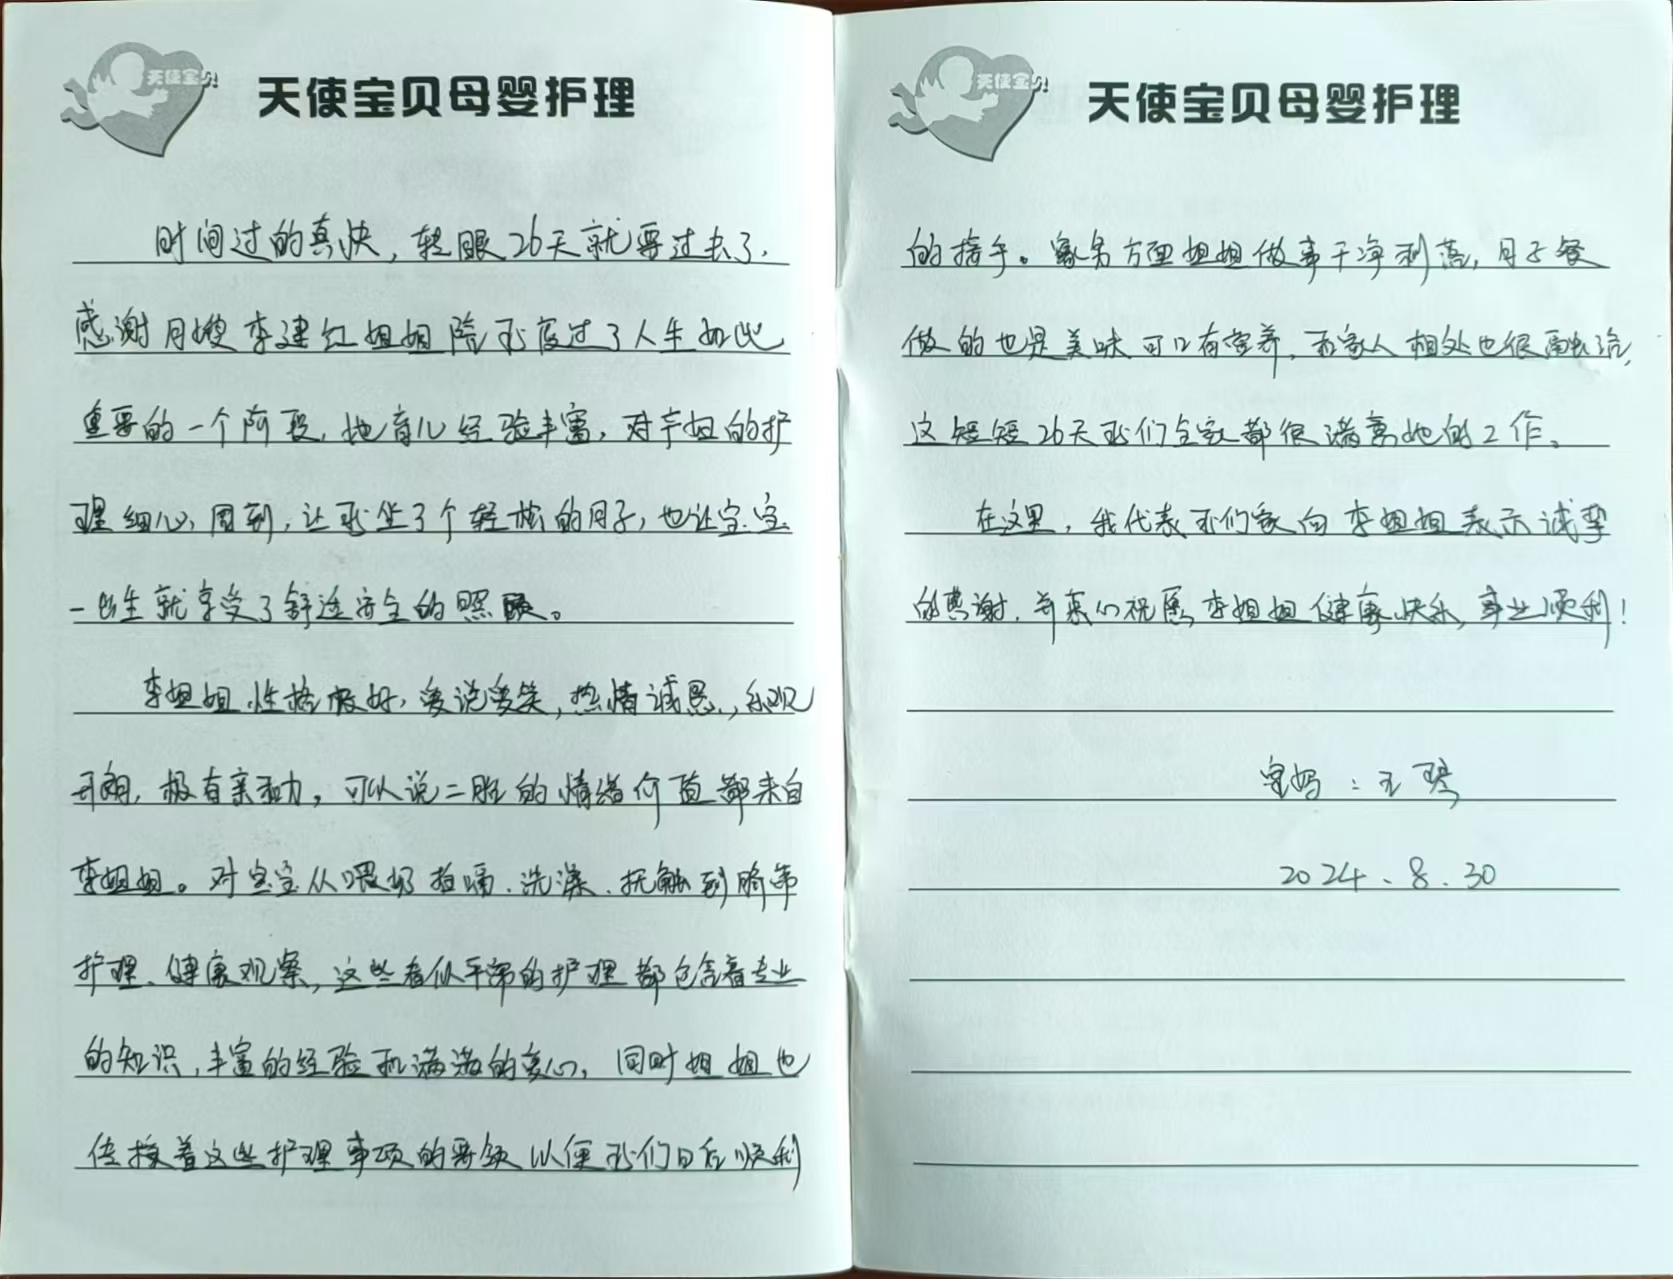 天使宝贝
天使宝贝母婴护理
时间过的真快，转眼26天就要过去了，
感谢月嫂李建红姐姐陪我度过了人生如此
重要的一个阶段，她育儿经验丰富，对产妇的护
理细心，周到，让我坐了个轻松的月子，也让宝宝
一出生就享受了舒适安全的照顾。
李姐姐性格极好，爱说爱笑，热情诚恳，乐观
开朗，极有亲和力，可以说二胎的情绪价值都来自
李姐姐。对宝宝从喂奶拍嗝、洗澡、抚触到脐带
护理、健康观察，这些看似平常的护理都包含着专业
的知识，丰富的经验和满满的爱心，同时姐姐也
传授着这些护理事项的要领以便我们日后顺利
天使宝贝
天使宝贝母婴护理
的接手。家务方面姐姐做事干净利落，月子餐
做的也是美味可口有营养，和家人相处也很融洽，
这短短26天我们全家都很满意她的工作。
在这里，我代表我们家向李姐姐表示诚挚
的感谢，并衷心祝愿李姐姐健康快乐，事业顺利！
宝妈：王琴
2024、8、30